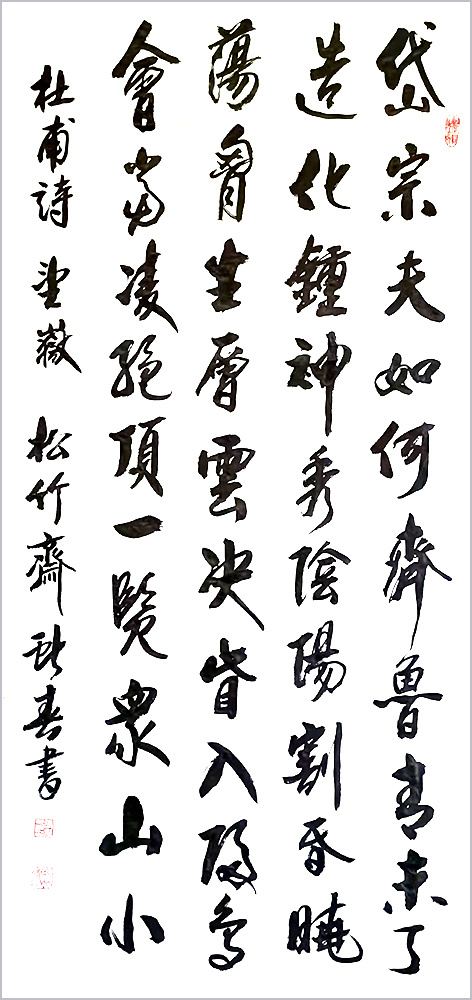 岱宗夫如何齊魯青未了
造化鍾神秀陰陽割昏曉
蕩胷生層雲決眥入歸鳥
會當凌絕頂一覽衆山小
杜甫詩 望嶽 松竹齋 春書